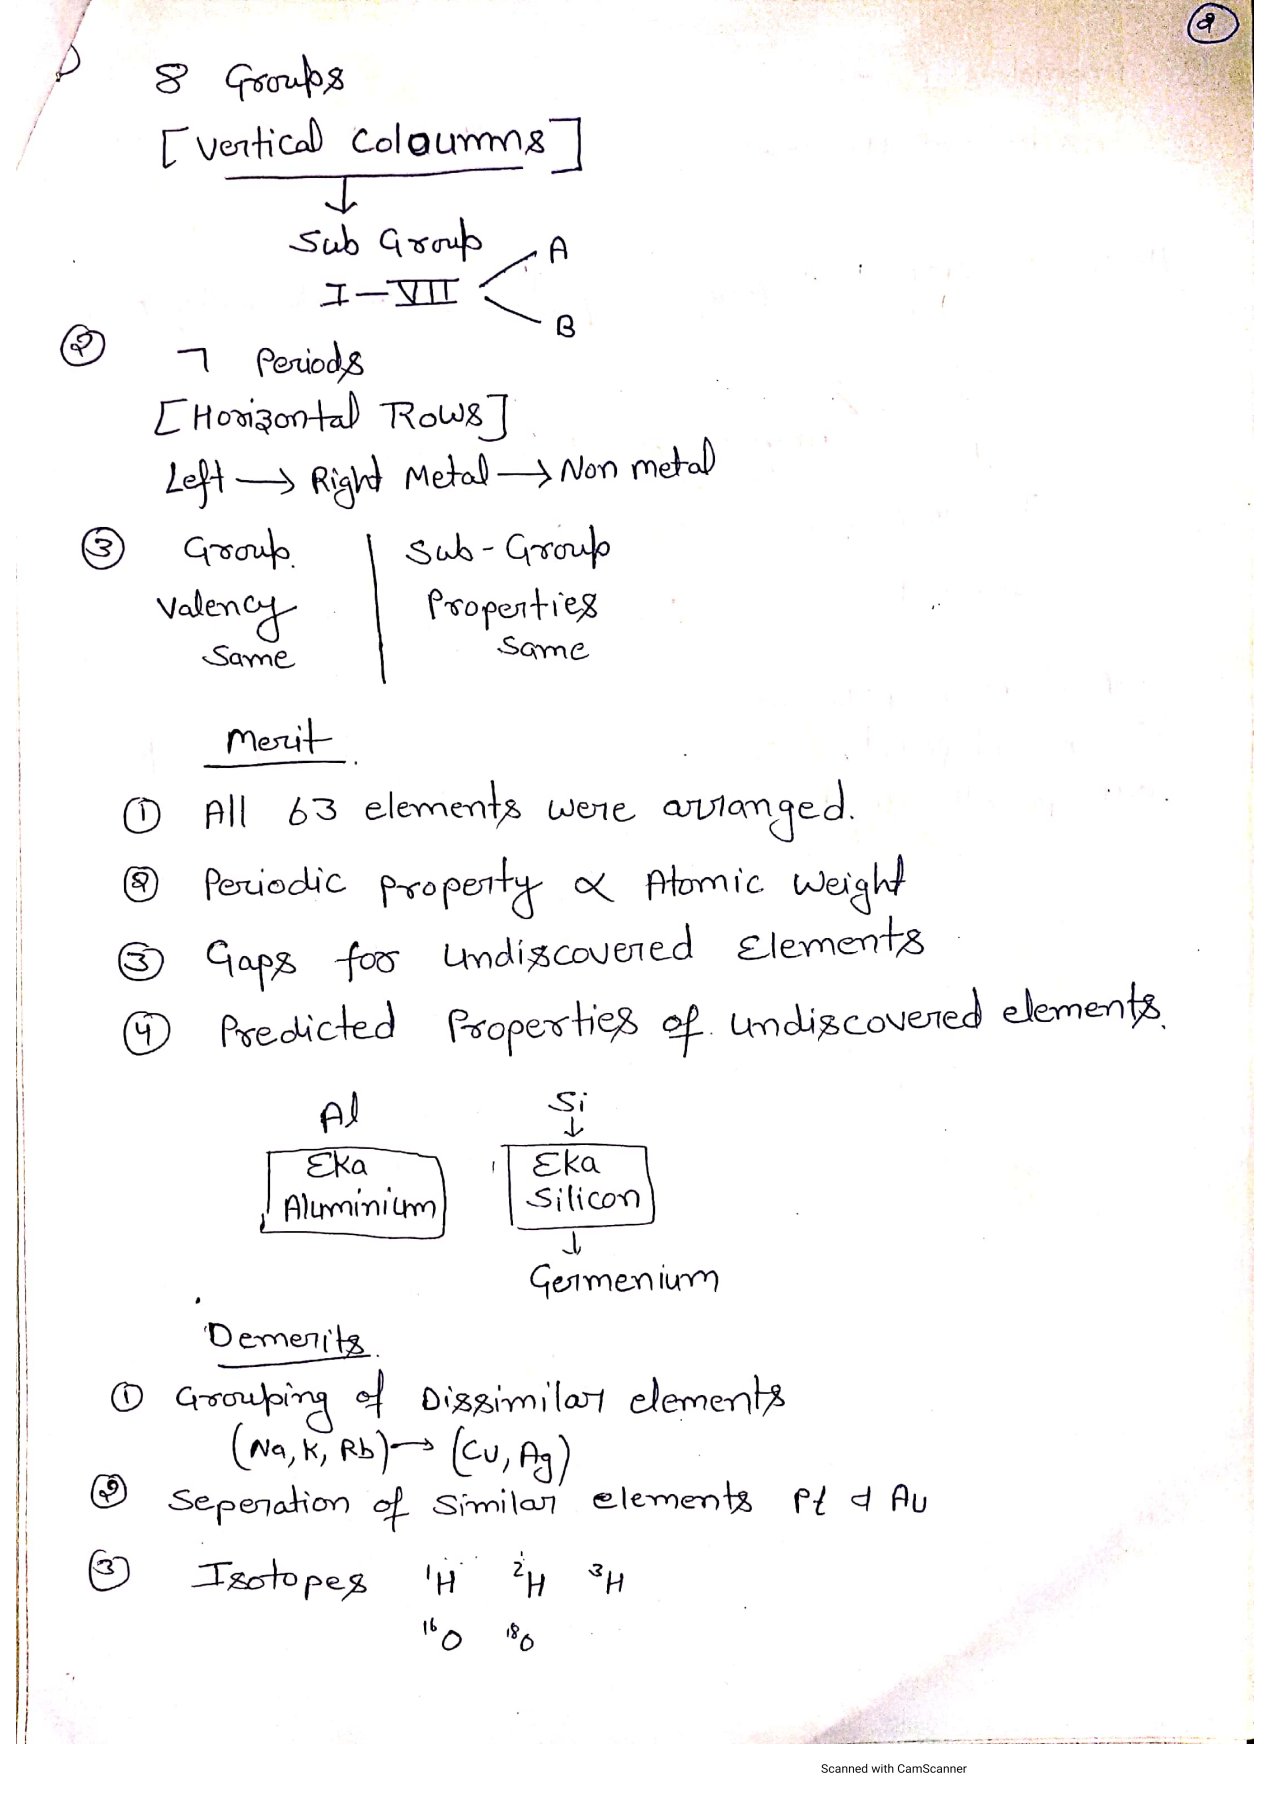 2
8 Groups
[Vertical Coloumns]
↓
Sub Group
I — VII A
B
② 7 Periods
[Horizontal Rows]
Left → Right Metal → Non metal
③ Group. | Sub-Group
Valency Properties
Same Same
Merit
① All 63 elements were arranged.
② Periodic property ∝ Atomic Weight
③ Gaps for Undiscovered Elements
④ Predicted Properties of undiscovered elements.
Al Si
↓
Eka Eka
Aluminium Silicon
↓
Germenium
Demerits
① Grouping of Dissimilar elements
(Na, K, Rb) → (Cu, Ag)
② Seperation of Similar elements Pt d Au
③ Isotopes ¹H ²H ³H
¹⁶O ¹⁸O
Scanned with CamScanner